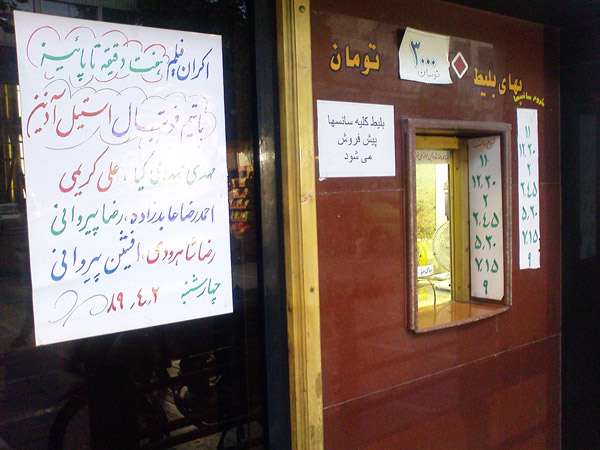 اکران فیلم هفت دقیقه تا پائیز
با تیم فوتبال استیل آذین
مهدی مهدوی کیا، علی کریمی
احمدرضا عابدزاده، رضا پیروانی
رضا شاهرودی، افشین پیروانی
چهارشنبه ۸۹.۴.۲
بهای بلیط
۳۰۰۰
تومان
تومان
بلیط کلیه سانسها
پیش فروش
می شود
۱۱
۱۲.۳۰
۲
۳.۴۵
۵.۳۰
۷.۱۵
۹
۱۱
۱۲.۳۰
۲
۳.۴۵
۵.۳۰
۷.۱۵
۹